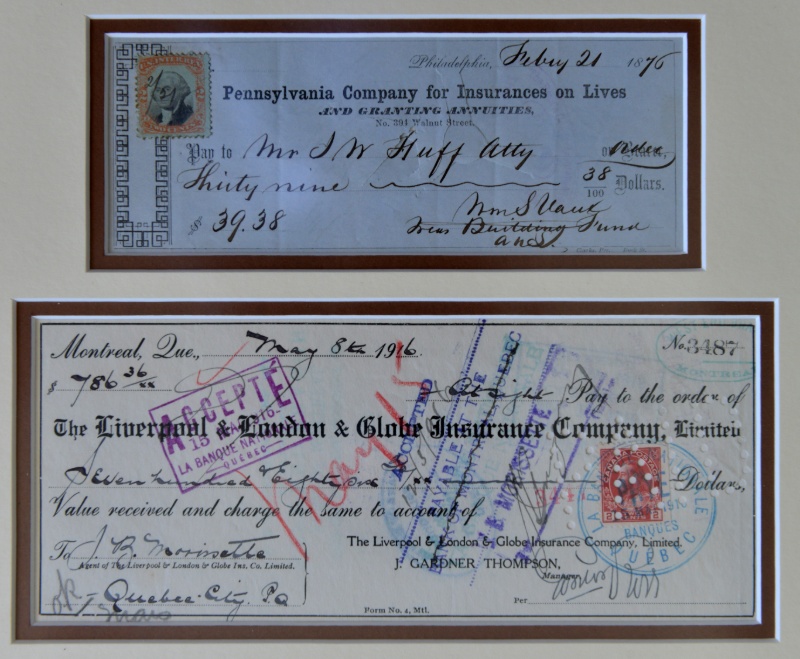 U.S. INTER. REV.
TWO CENTS
2/21
Philadelphia, Feby 21 1876
Pennsylvania Company for Insurances on Lives
AND GRANTING ANNUITIES,
No. 304 Walnut Street.
Pay to Mr J W Huff Atty or order
Thirty nine 38/100 Dollars.
39.38
Wm S Vaux
Treas Building Fund
ANS.
Montreal, Que., May 8th 1916. No. 3487
$ 786 36/xx At sight Pay to the order of
The Liverpool & London & Globe Insurance Company, Limited
Seven hundred & Eighty six 36/xx Dollars,
Value received and charge the same to account of
To J. B. Morissette
Agent of The Liverpool & London & Globe Ins. Co. Limited.
Quebec City. PQ
The Liverpool & London & Globe Insurance Company, Limited.
J. GARDNER THOMPSON,
Manager.
Per
Form No. 4, Mtl.
ACCEPTÉ
15 MAI 1916
LA BANQUE NATIONALE
QUEBEC
May 15
ACCEPTED
PAYABLE AT THE
QUEBEC
J. B. MORISSETTE
MONTREAL
LA BANQUE NATIONALE
BANQUES
QUEBEC
OK